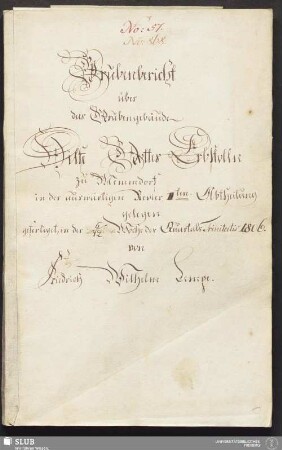 No: 57.
Grubenbericht
über
das Grubengebäude
Hilfe Gottes Erbstolln
zu Memmendorf
in der auswärtigen Revier 1ten Abtheilung
gelegen
gefertiget, in der Woche des Quartals Trinitatis 1816.
von
Friedrich Wilhelm Lempe.
SLUB
Wir führen Wissen.
UNIVERSITÄTSBIBLIOTHEK
FREIBERG